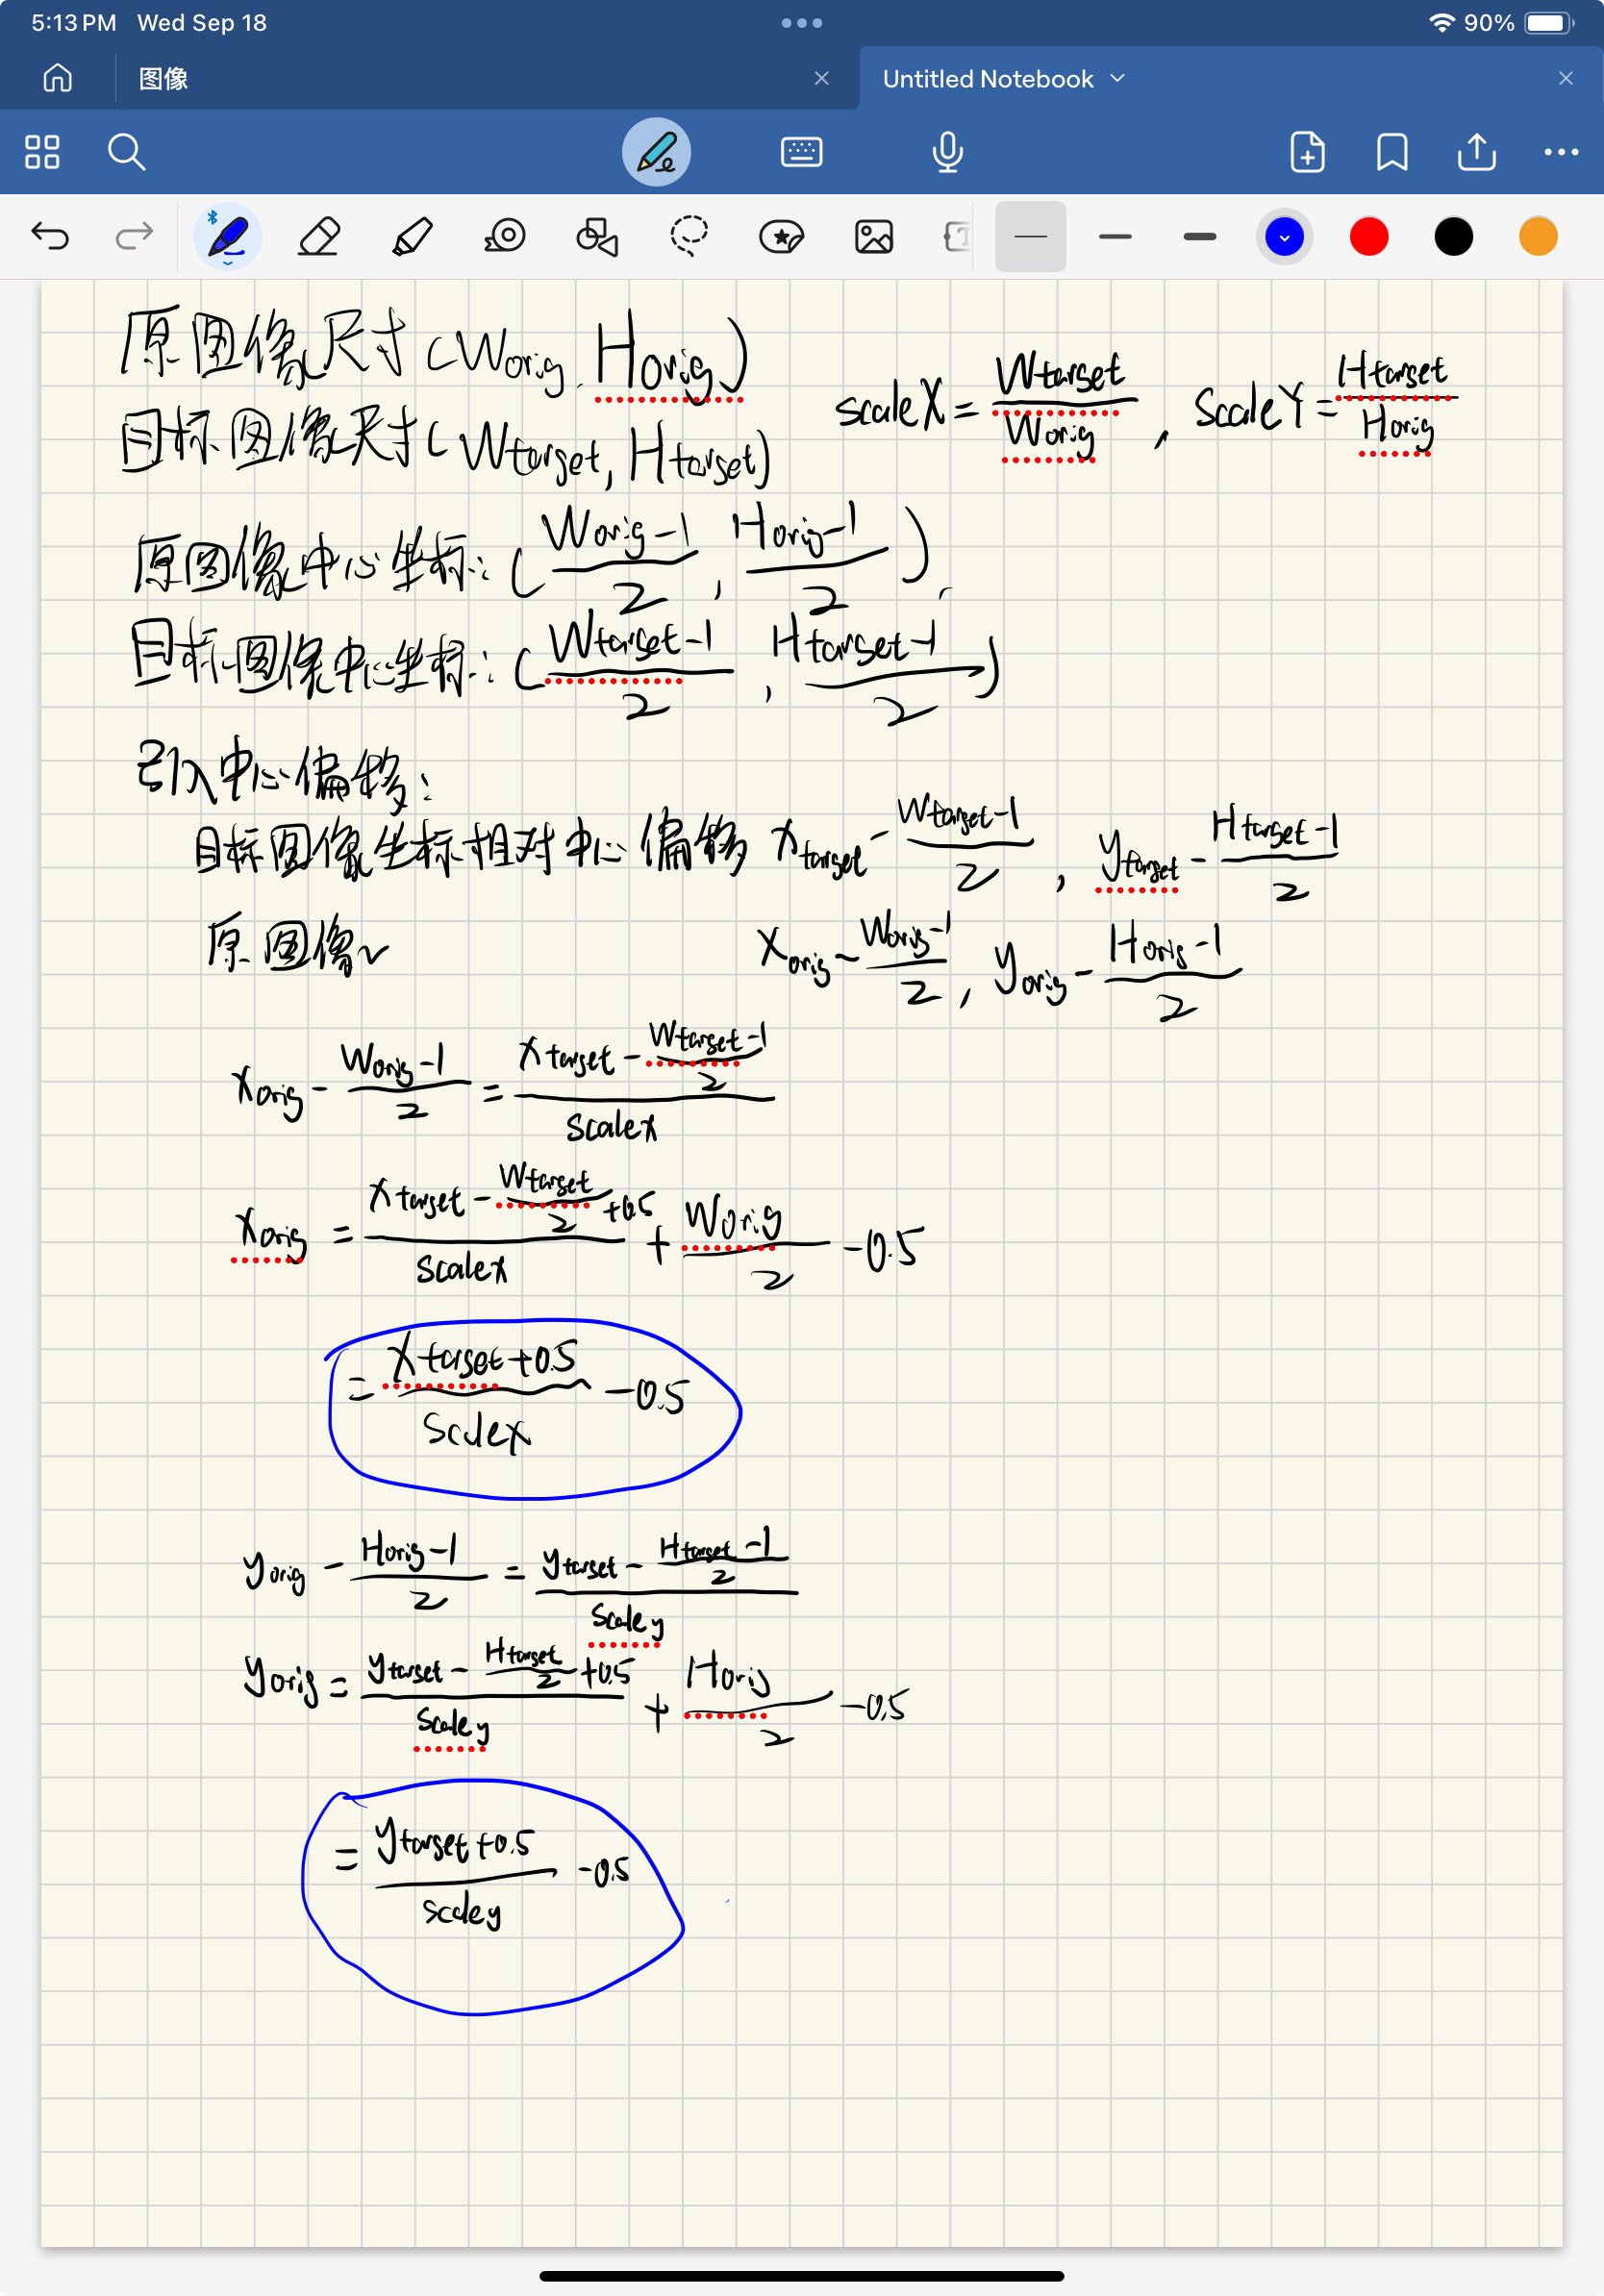 5:13 PM Wed Sep 18 90%
图像 Untitled Notebook
原图像尺寸(W_orig, H_orig)
目标图像尺寸(W_target, H_target)
scaleX = W_target/W_orig , ScaleY = H_target/H_orig
原图像中心坐标: ((W_orig-1)/2, (H_orig-1)/2),
目标图像中心坐标: ((W_target-1)/2, (H_target-1)/2)
引入中心偏移:
目标图像坐标相对中心偏移 x_target - (W_target-1)/2 , y_target - (H_target-1)/2
原图像~ x_orig - (W_orig-1)/2 , y_orig - (H_orig-1)/2
x_orig - (W_orig-1)/2 = (x_target - (W_target-1)/2)/scalex
x_orig = (x_target - W_target/2 + 0.5)/scalex + W_orig/2 - 0.5
= (x_target+0.5)/scalex - 0.5
y_orig - (H_orig-1)/2 = (y_target - (H_target-1)/2)/scaley
y_orig = (y_target - H_target/2 + 0.5)/scaley + H_orig/2 - 0.5
= (y_target+0.5)/scaley - 0.5